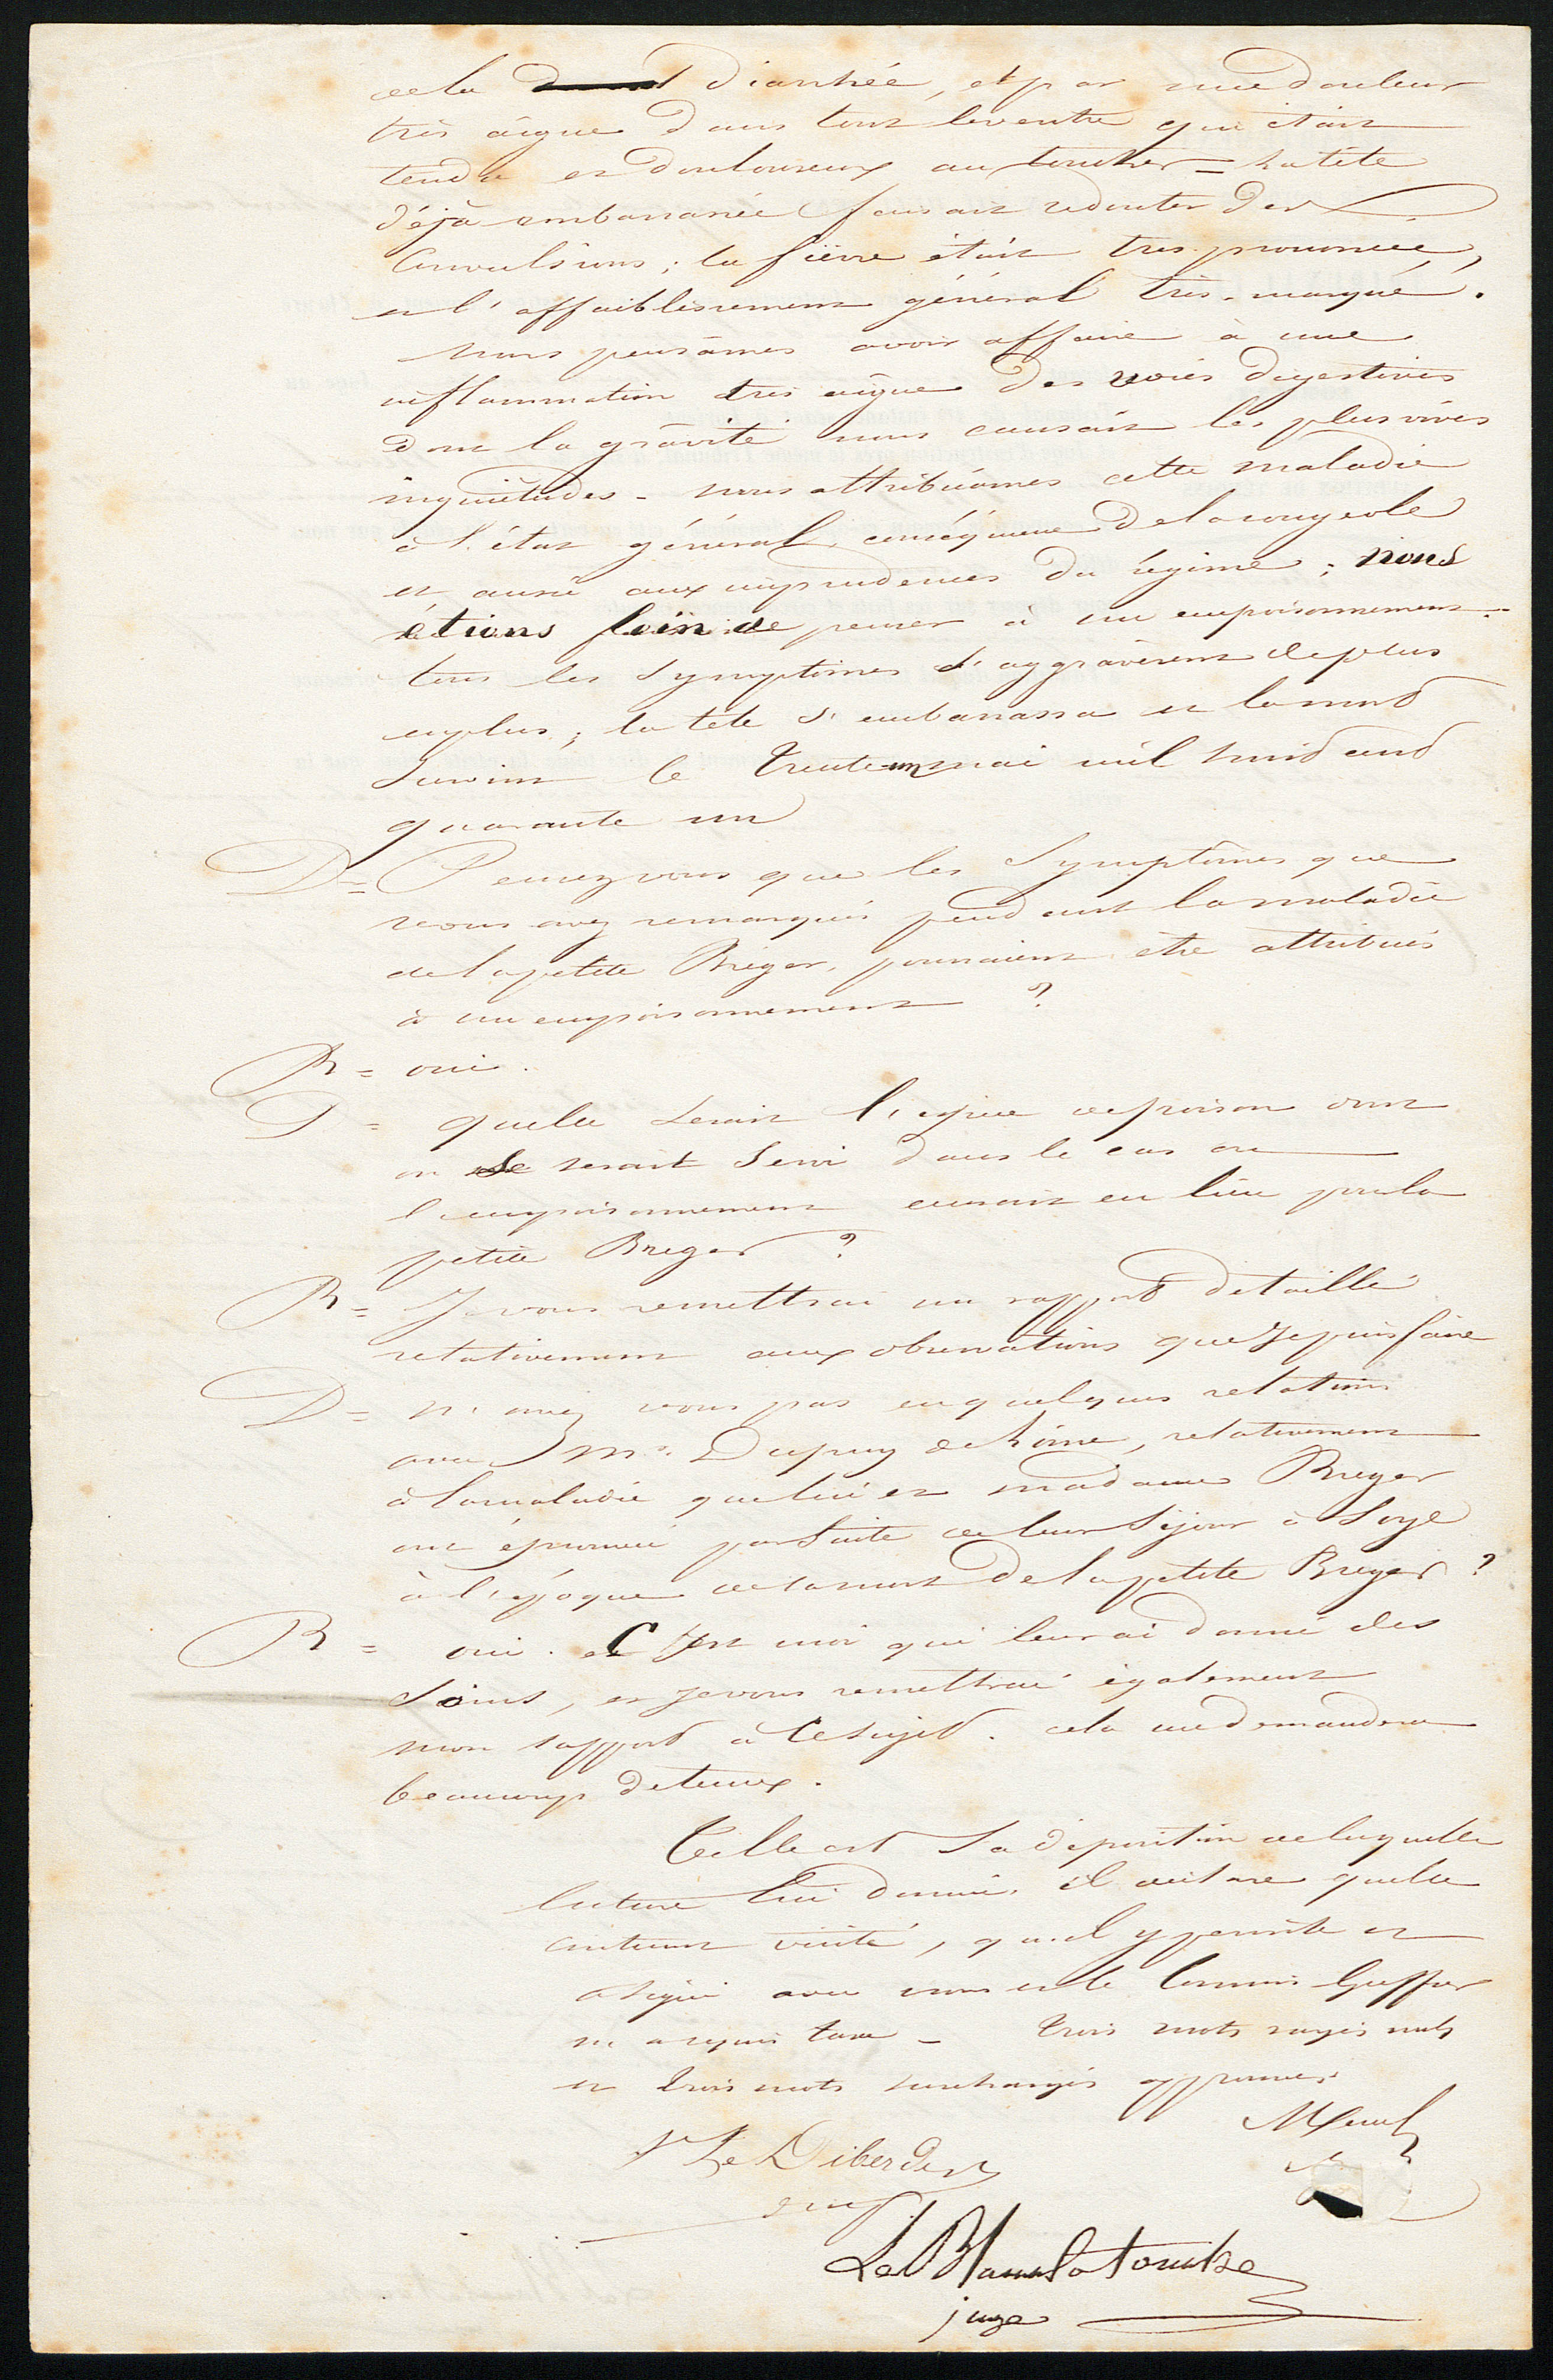 de la diarrhée, et par une douleur
très aigue dans tout le ventre qui était
tendu et douloureux au toucher = la tête
déjà embarrassée faisait redouter des
convulsions ; la fièvre était très prononcée,
et l'affaiblissement général très-marqué.
nous pensâmes avoir affaire à une
inflammation très aigue des voies digestives
dont la gravité nous causait les plus vives
inquiétudes - nous attribuâmes cette maladie
à l'état général, conséquence de la rougeole
et aussi aux imprudences du régime ; nous
étions loin de penser à un empoisonnement -
tous les symptômes s'aggravèrent de plus
en plus ; la tête s'embarrassa et la mort
survint le trente un mai mil huit cent
quarante un
D = Pensez vous que les symptômes que
vous avez remarqués pendant la maladie
de la petite Bréger, pourraient être attribués
à un empoisonnement ?
R = oui.
D = quelle serait l'espèce de poison dont
on se serait servi dans le cas ou
l'empoisonnement aurait eu lieu pour la
petite Breger ?
R = Je vous remettrai un rapport détaillé
relativement aux observations que je puis faire
D = n'avez vous pas eu quelques relations
avec Mr. Dupuy de Lôme, relativement
à la maladie que lui et madame Breger
ont éprouvé par suite de leur séjour à Soye
à l'époque de la mort de la petite Breger ?
R = oui. C'est moi qui leur ai donné des
soins, et je vous remettrai également
mon rapport à ce sujet. cela me demandera
beaucoup de temps.
Telle est sa déposition de laquelle
lecture lui donnée, il déclare qu'elle
contient vérité, qu'il y persiste et
a signé avec nous et le Commis Greffier
n'a requis taxe - trois mots rayés nuls
et trois mots surchargés approuvés
Le Diberder
juge